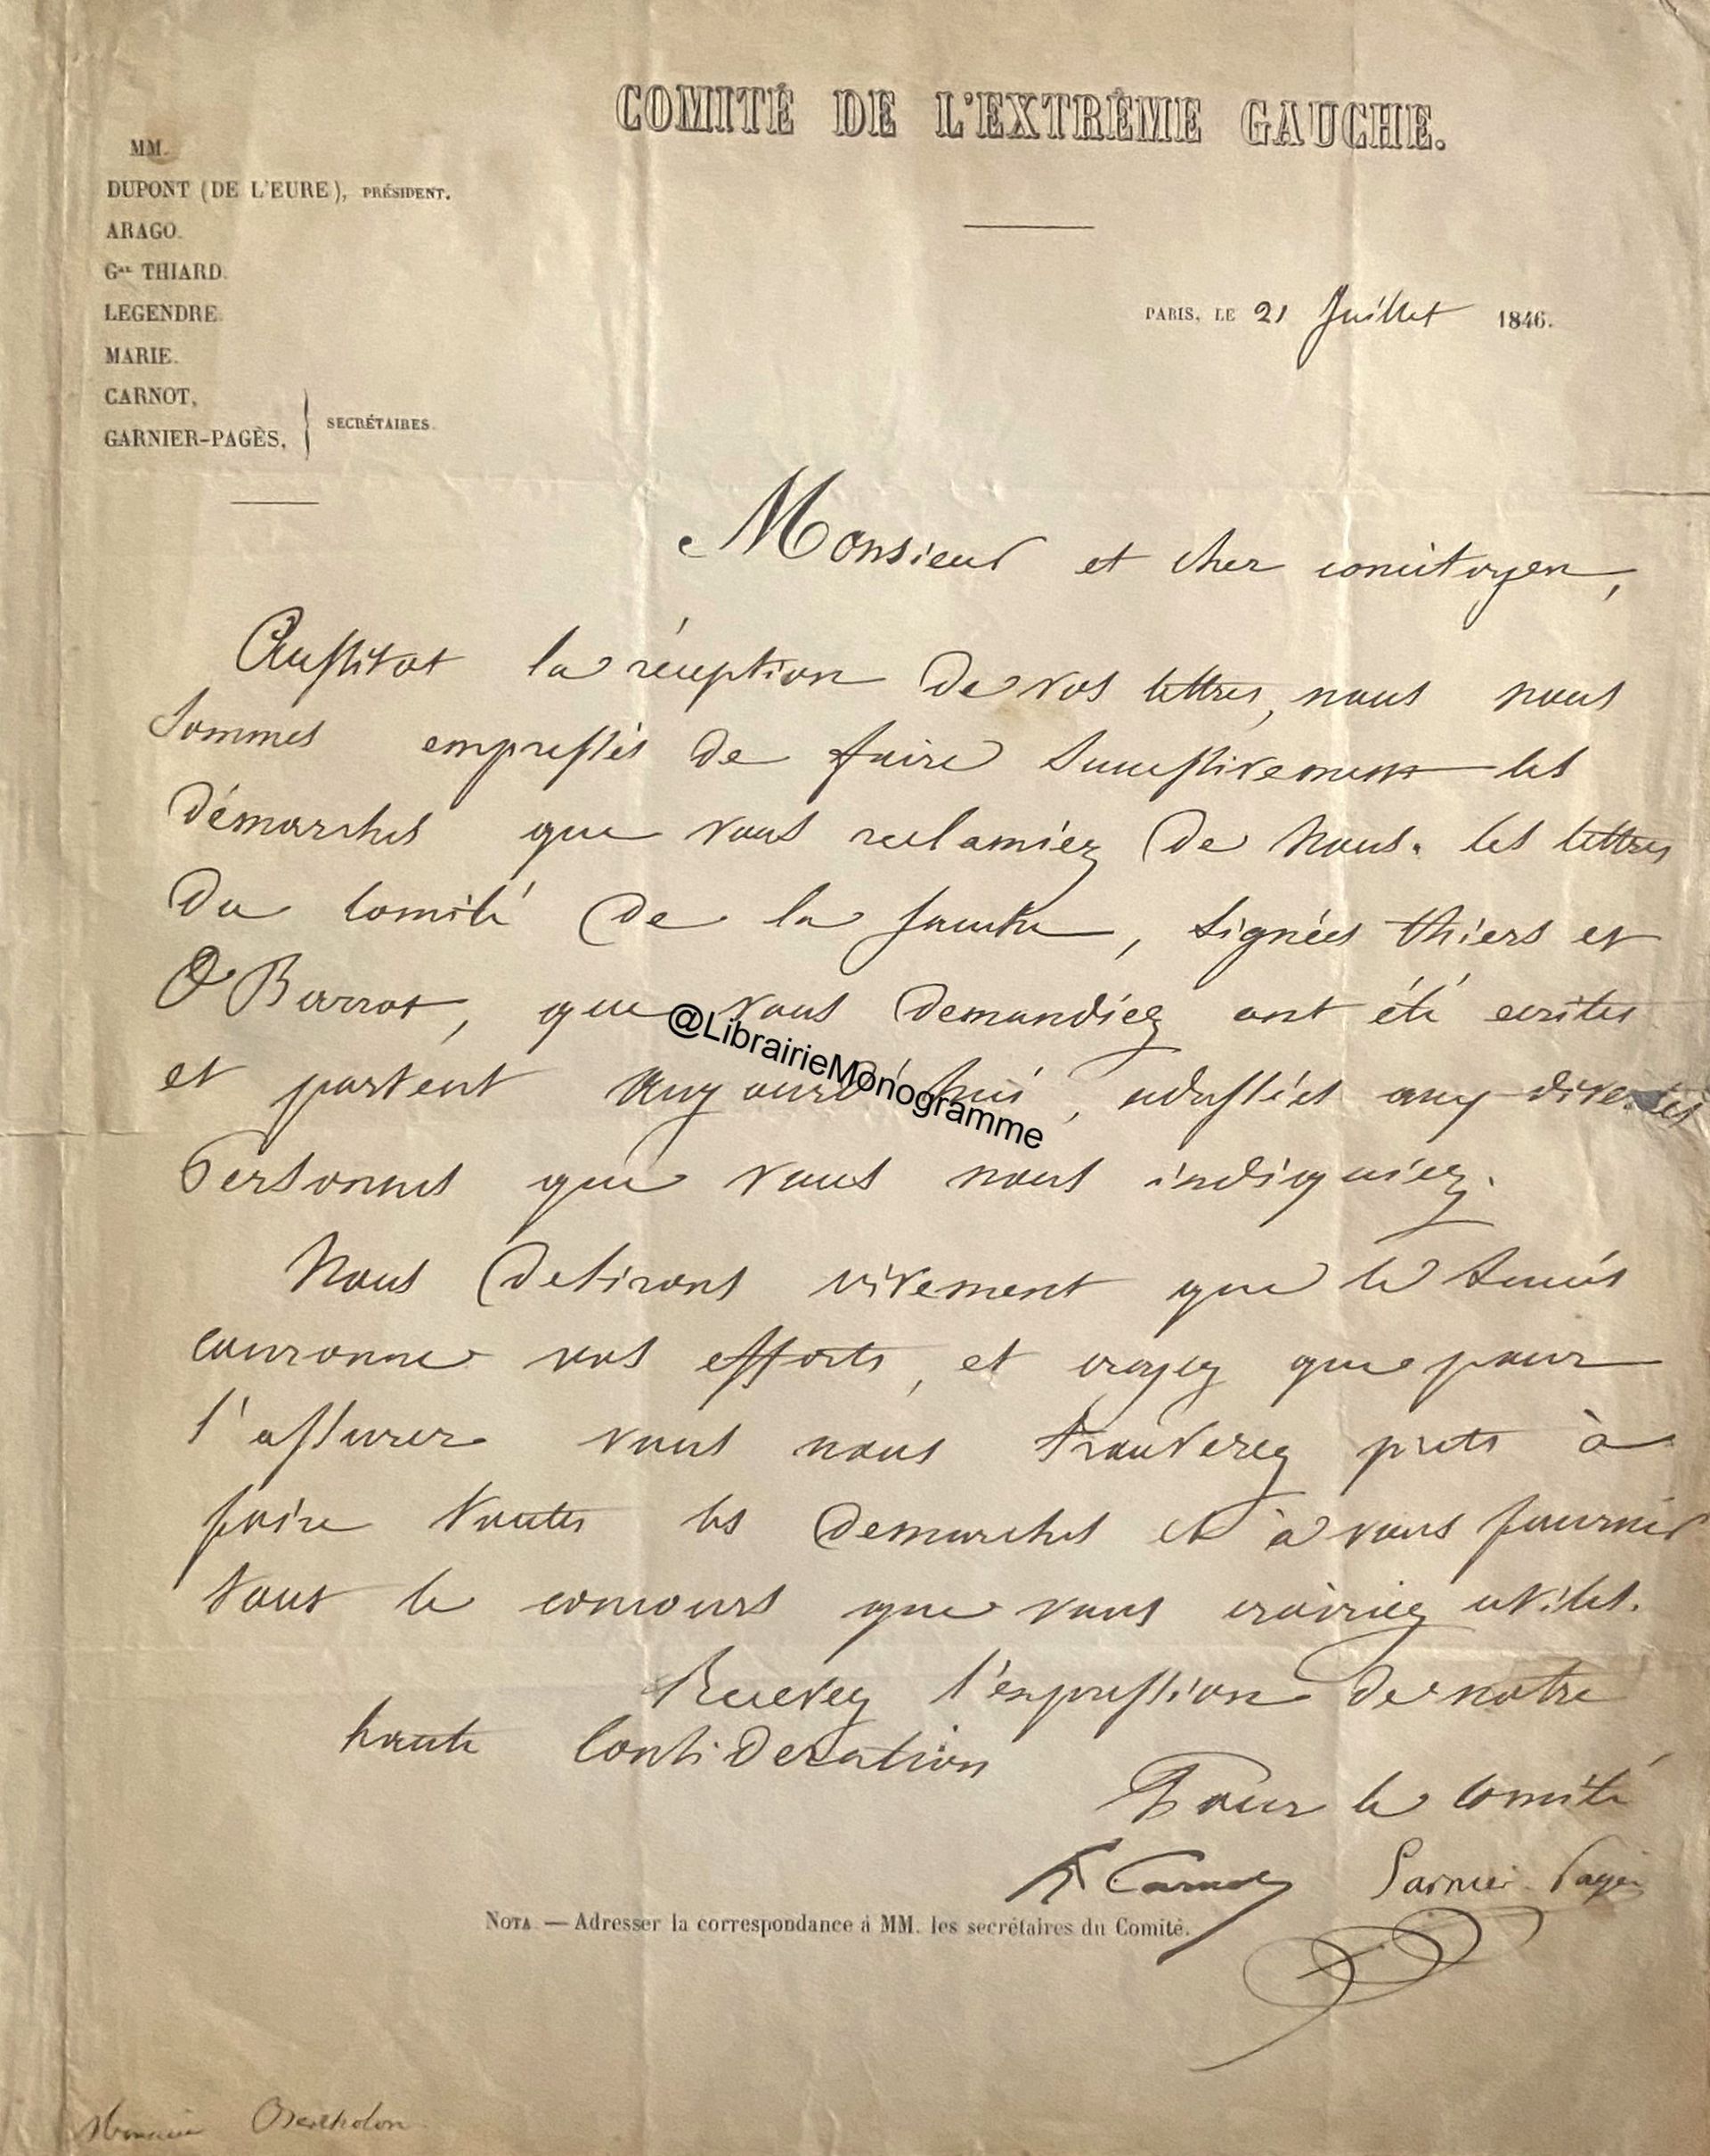 COMITÉ DE L'EXTRÊME GAUCHE.
MM.
DUPONT (DE L'EURE), PRÉSIDENT.
ARAGO.
Gal THIARD.
LEGENDRE.
MARIE.
CARNOT,
GARNIER-PAGÈS,
SECRÉTAIRES.
PARIS, LE 21 Juillet 1846.
Monsieur et cher concitoyen,
Aussitot la réception de vos lettres, nous nous
sommes empressés de faire successivement les
démarches que vous reclamiez de nous. les lettres
du comité de la gauche, signées thiers et
O Barrot, que vous demandiez ont été ecrites
et partent aujourd'hui, adressées aux diverses
Personnes que vous nous indiquiez.
Nous desirons vivement que le succès
couronne vos efforts, et croyez que pour
l'assurer vous nous trouverez prets à
faire toutes les demarches et à vous fournir
tout le concours que vous croiriez utiles.
Recevez l'expression de notre
haute consideration
Pour le comité
H Carnot Garnier-Pagès
NOTA. — Adresser la correspondance à MM. les secrétaires du Comité.
Bertholon
@LibrairieMonogramme